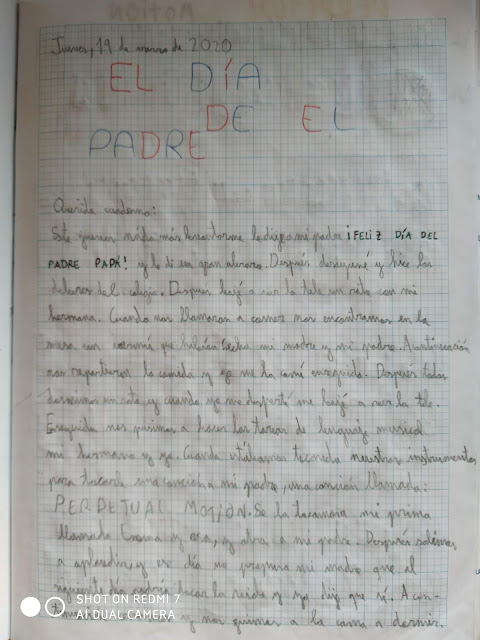 Jueves, 19 de marzo de 2020
EL DÍA
DE EL
PADRE
Querido cuaderno:
Este jueves nada más levantarme le dije a mi padre ¡FELIZ DÍA DEL
PADRE PAPÁ! y le di un gran abrazo. Después desayuné y hice los
deberes del colegio. Después bajé a ver la tele un rato con mi
hermana. Cuando nos llamaron a comer nos encontramos en la
mesa con que habían hecho mi madre y mi padre. A continuación
nos repartieron la comida y yo me la comí enseguida. Después todos
dormimos un rato, y cuando yo me desperté me bajé a ver la tele.
Enseguida nos pusimos a hacer las tareas de lenguaje musical
mi hermana y yo. Cuando estábamos tocando nuestros instrumentos
para tocarle una canción a mi padre, una canción llamada:
PERPETUAL MOTION. Se la tocamos mi prima
llamada y yo, y a mi padre. Después salimos
a aplaudir, y ese día mi madre que el
siguiente día podría tocar la y yo dije que sí. A con-
y nos fuimos a la cama a dormir.
SHOT ON REDMI 7
AI DUAL CAMERA